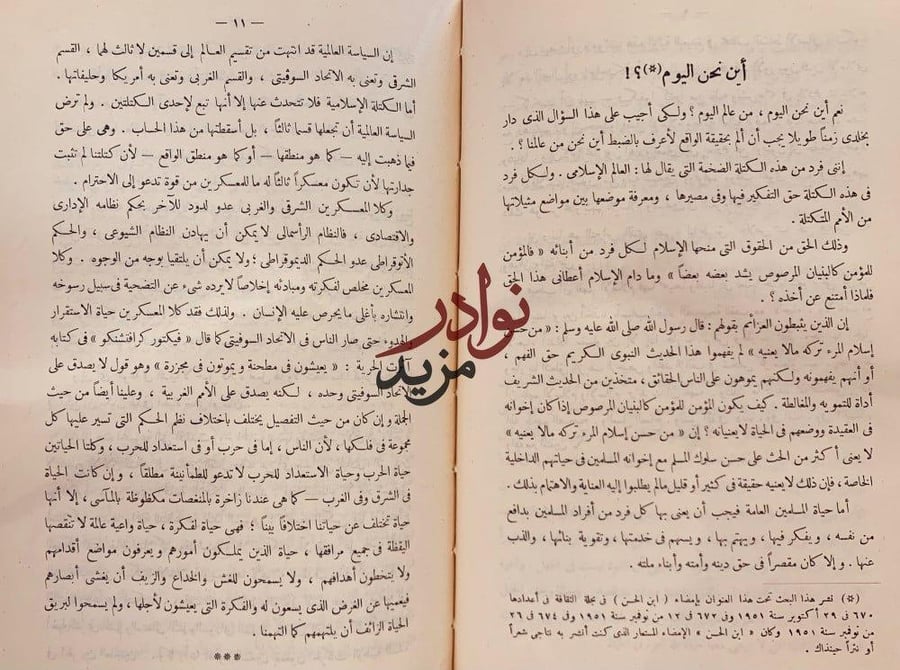 أين نحن اليوم (*) ؟!
نعم أين نحن اليوم ، من عالم اليوم ؟ ولكى أجيب على هذا السؤال الذى دار
بخلدى زمناً طويلا يجب أن ألم بحقيقة الواقع لأعرف بالضبط أين نحن من عالمنا ؟ .
إننى فرد من هذه الكتلة الضخمة التى يقال لها : العالم الإسلامى . ولكل فرد
فى هذه الكتلة حق التفكير فيها وفى مصيرها ، ومعرفة موضعها بين مواضع مثيلاتها
من الأمم المتكتلة .
وذلك الحق من الحقوق التى منحها الإسلام لكل فرد من أبنائه « فالمؤمن
للمؤمن كالبنيان المرصوص يشد بعضه بعضاً » وما دام الإسلام أعطانى هذا الحق
فلماذا أمتنع عن أخذه ؟ .
إن الذين يثبطون العزائم بقولهم : قال رسول الله صلى الله عليه وسلم : « من حسن
إسلام المرء تركه مالا يعنيه » لم يفهموا هذا الحديث النبوى الكريم حق الفهم ،
أو أنهم يفهمونه ولكنهم يموهون على الناس الحقائق ، متخذين من الحديث الشريف
أداة للتمويه والمغالطة . كيف يكون المؤمن للمؤمن كالبنيان المرصوص إذا كان إخوانه
فى العقيدة ووضعهم فى الحياة لايعنيانه ؟ إن « من حسن إسلام المرء تركه مالا يعنيه »
لا يعنى أكثر من الحث على حسن سلوك المسلم مع إخوانه المسلمين فى حياتهم الداخلية
الخاصة ، فإن ذلك لايعنيه حقيقة فى كثير أو قليل مالم يطلبوا إليه العناية والاهتمام بذلك .
أما حياة المسلمين العامة فيجب أن يعنى بها كل فرد من أفراد المسلمين بدافع
من نفسه ، ويفكر فيها ، ويهتم بها ، ويسهم فى خدمتها ، وتقوية بنائها ، والذب
عنها . وإلا كان مقصراً فى حق دينه وأمته وأبناء ملته .
(*) نشر هذا البحث تحت هذا العنوان بإمضاء ( ابن الحسن ) فى مجلة الثقافة فى أعدادها
٦٧٠ فى ٢٩ أكتوبر سنة ١٩٥١ وفى ٦٧٢ فى ١٢ من نوفمبر سنة ١٩٥١ وفى ٦٧٤ فى ٢٦
من نوفمبر سنة ١٩٥١ وكان « ابن الحسن » الإمضاء المستعار الذى كنت أنشر به نتاجى شعراً
أو نثراً حينذاك .
— ١١ —
إن السياسة العالمية قد انتهت من تقسيم العالم إلى قسمين لا ثالث لهما ، القسم
الشرقى وتعنى به الاتحاد السوفيتى ، والقسم الغربى وتعنى به أمريكا وحليفاتها .
أما الكتلة الإسلامية فلا تتحدث عنها إلا أنها تبع لإحدى الكتلتين . ولم ترض
السياسة العالمية أن تجعلها قسما ثالثاً ، بل أسقطتها من هذا الحساب . وهى على حق
فيما ذهبت إليه — كما هو منطقها — أو كما هو منطق الواقع — لأن كتلتنا لم تثبت
جدارتها لأن تكون معسكراً ثالثاً له ما للمعسكرين من قوة تدعو إلى الاحترام .
وكلا المعسكرين الشرقى والغربى عدو لدود للآخر بحكم نظامه الإدارى
والاقتصادى ، فالنظام الرأسمالى لا يمكن أن يهادن النظام الشيوعى ، والحكم
الأتوقراطى عدو الحكم الديموقراطى ؛ ولا يمكن أن يلتقيا بوجه من الوجوه . وكلا
المعسكرين مخلص لفكرته ومبادئه إخلاصاً لا يرده شىء عن التضحية فى سبيل رسوخه
وانتشاره بأغلى ما يحرص عليه الإنسان . ولذلك فقد كلا المعسكرين حياة الاستقرار
والهدوء حتى صار الناس فى الاتحاد السوفيتى كما قال « فيكتور كرافتشنكو » فى كتابه
آثرت الحرية : « يعيشون فى مطحنة ويموتون فى مجزرة » وهو قول لا يصدق على
الاتحاد السوفيتى وحده ، لكنه يصدق على الأمم الغربية ، وعلينا أيضاً من حيث
الجملة وإن كان من حيث التفصيل يختلف باختلاف نظم الحكم التى تسير عليها كل
مجموعة فى فلكها ، لأن الناس ، إما فى حرب أو فى استعداد للحرب ، وكلتا الحياتين
حياة الحرب وحياة الاستعداد للحرب لا تدعو للطمأنينة مطلقاً ، وإن كانت الحياة
فى الشرق وفى الغرب — كما هى عندنا زاخرة بالمنغصات مكظوظة بالمآسى ، إلا أنها
حياة تختلف عن حياتنا اختلافاً بيناً ؛ فهى حياة لفكرة ، حياة واعية عالمة لا تنقصها
اليقظة فى جميع مرافقها ، حياة الذين يملكون أمورهم ويعرفون مواضع أقدامهم
ولا يتخطون أهدافهم ، ولا يسمحون للغش والخداع والزيف أن يغشى أبصارهم
فيعميها عن الغرض الذى يسعون له والفكرة التى يعيشون لأجلها ، ولم يسمحوا لبريق
الحياة الزائف أن يلتهمهم كما التهمنا .
***
نوادر
مزيد